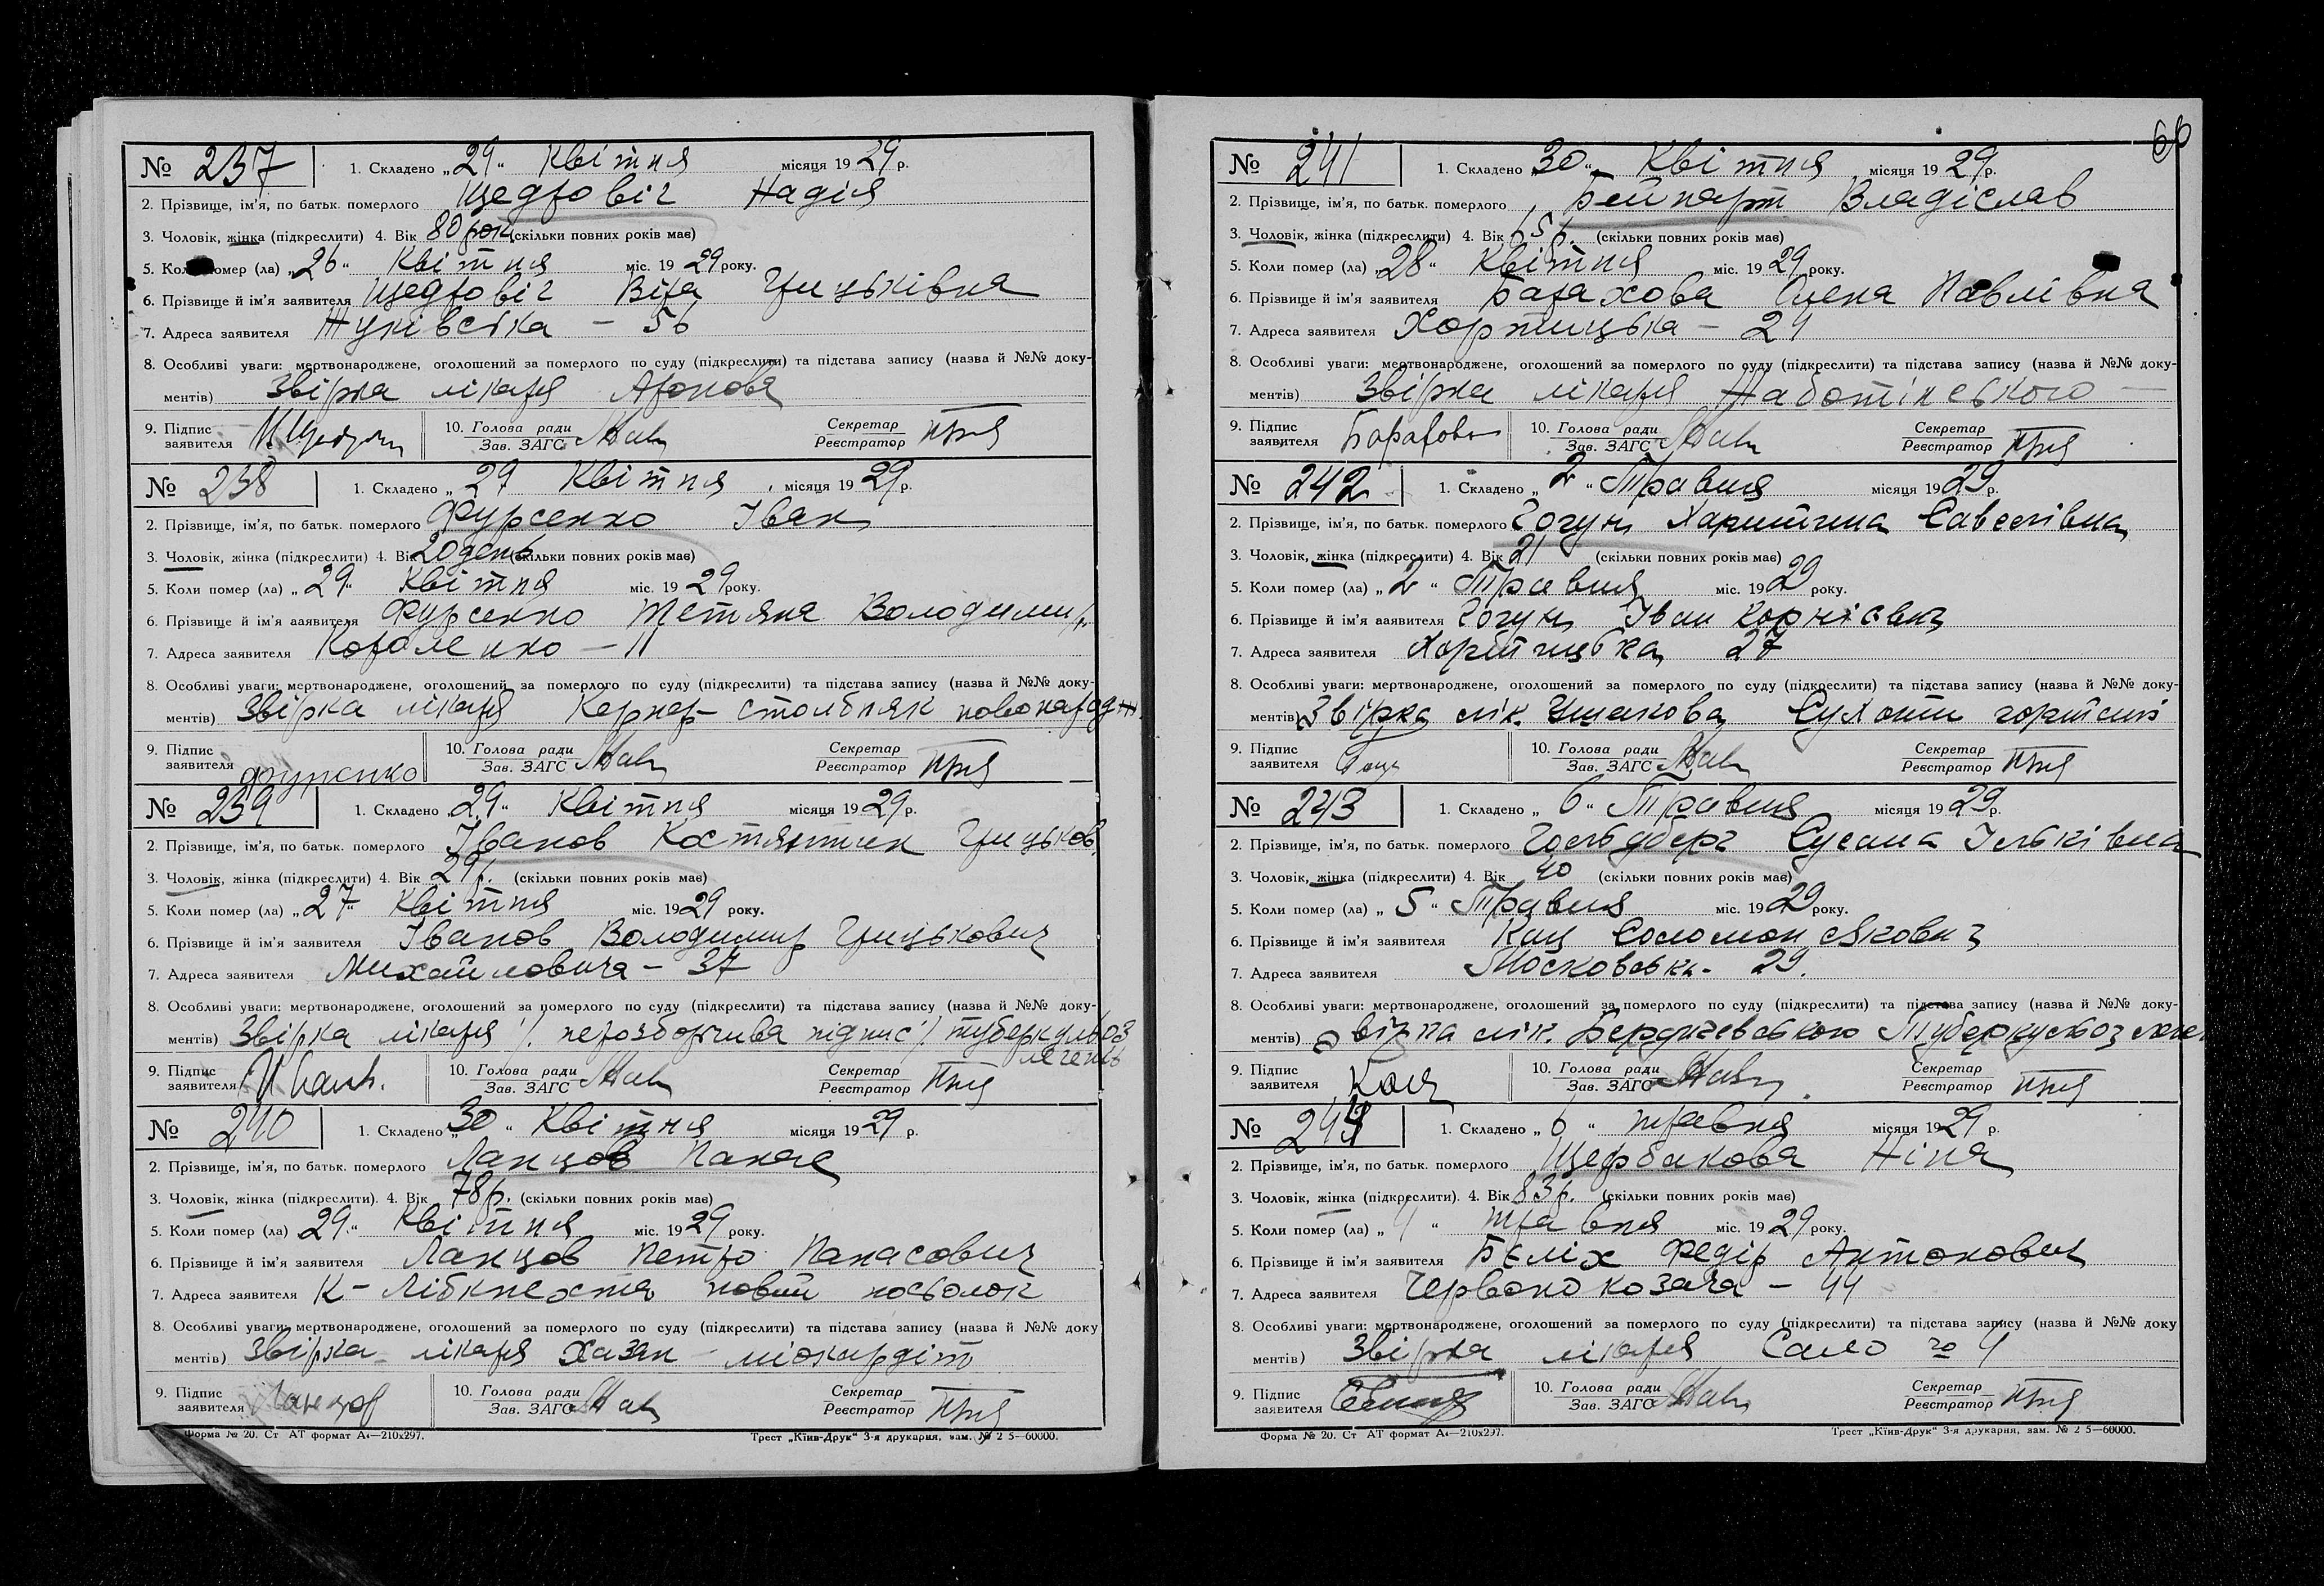 № 237 1. Складено „29" Квітня місяця 1929 р.
2. Прізвище, ім'я, по батьк. померлого Щедровіч Надія
3. Чоловік, жінка (підкреслити) 4. Вік 80 рок (скільки повних років має)
5. Коли помер (ла) „26" Квітня міс. 1929 року.
6. Прізвище й ім'я заявителя Щедровіч Віра Грицьківна
7. Адреса заявителя Жуківська – 56
8. Особливі уваги: мертвонароджене, оголошений за померлого по суду (підкреслити) та підстава запису (назва й №№ доку-
ментів) Звірка лікаря Аронова
9. Підпис заявителя 10. Голова ради Зав. ЗАГС Секретар Реєстратор
№ 238 1. Складено „29 Квітня місяця 1929 р.
2. Прізвище, ім'я, по батьк. померлого Фурсенко Іван
3. Чоловік, жінка (підкреслити) 4. Вік 20 день (скільки повних років має)
5. Коли помер (ла) „29" Квітня міс. 1929 року.
6. Прізвище й ім'я заявителя Фурсенко Тетяна Володимир.
7. Адреса заявителя Короленко – 11
8. Особливі уваги: мертвонароджене, оголошений за померлого по суду (підкреслити) та підстава запису (назва й №№ доку-
ментів) Звірка лікаря Кернер – столбняк новонародж
9. Підпис заявителя Фурсенко 10. Голова ради Зав. ЗАГС Секретар Реєстратор
№ 239 1. Складено „29" Квітня місяця 1929 р.
2. Прізвище, ім'я, по батьк. померлого Іванов Костянтин Грицьков.
3. Чоловік, жінка (підкреслити) 4. Вік 29 р. (скільки повних років має)
5. Коли помер (ла) „27" Квітня міс. 1929 року.
6. Прізвище й ім'я заявителя Іванов Володимир Грицькович
7. Адреса заявителя Михайловича – 37
8. Особливі уваги: мертвонароджене, оголошений за померлого по суду (підкреслити) та підстава запису (назва й №№ доку-
ментів) Звірка лікаря /. нерозборчива підпис /. туберкульоз
легенів
9. Підпис заявителя 10. Голова ради Зав. ЗАГС Секретар Реєстратор
№ 240 1. Складено „30" Квітня місяця 1929 р.
2. Прізвище, ім'я, по батьк. померлого Ланцов Панас
3. Чоловік, жінка (підкреслити). 4. Вік 78 р. (скільки повних років має)
5. Коли помер (ла) 29" Квітня міс. 1929 року.
6. Прізвище й ім'я заявителя Ланцов Петро Панасович
7. Адреса заявителя К – Лібкнехта новий посьолок
8. Особливі уваги: мертвонароджене, оголошений за померлого по суду (підкреслити) та підстава запису (назва й №№ доку
ментів) Звірка лікаря Хазан міокардіт
9. Підпис заявителя Ланцов 10. Голова ради Зав. ЗАГС Секретар Реєстратор
Форма № 20. Ст АТ формат А4—210х297. Трест „Київ-Друк" 3-я друкарня, зам. № 2 5—60000.
66
№ 241 1. Складено „30" Квітня місяця 1929 р.
2. Прізвище, ім'я, по батьк. померлого Бейнарт Владіслав
3. Чоловік, жінка (підкреслити) 4. Вік 65 р. (скільки повних років має)
5. Коли помер (ла) „28" Квітня міс. 1929 року.
6. Прізвище й ім'я заявителя Олена Павлівна
7. Адреса заявителя Хортицька – 24
8. Особливі уваги: мертвонароджене, оголошений за померлого по суду (підкреслити) та підстава запису (назва й №№ доку-
ментів) Звірка лікаря Жаботінського –
9. Підпис заявителя 10. Голова ради Зав. ЗАГС Секретар Реєстратор
№ 242 1. Складено „2" Травня місяця 1929 р.
2. Прізвище, ім'я, по батьк. померлого Гогун Харитина Савеліївна
3. Чоловік, жінка (підкреслити) 4. Вік 21 (скільки повних років має)
5. Коли помер (ла) „2" Травня міс. 1929 року.
6. Прізвище й ім'я заявителя Гогун Іван Корнієвич
7. Адреса заявителя Хортицька 27
8. Особливі уваги: мертвонароджене, оголошений за померлого по суду (підкреслити) та підстава запису (назва й №№ доку-
ментів) Звірка лік. Ушакова Сухоти
9. Підпис заявителя 10. Голова ради Зав. ЗАГС Секретар Реєстратор
№ 243 1. Складено „6" Травня місяця 1929 р.
2. Прізвище, ім'я, по батьк. померлого Гольдберг Сусана Ільківна
3. Чоловік, жінка (підкреслити) 4. Вік 40 (скільки повних років має)
5. Коли помер (ла) „5" Травня міс. 1929 року.
6. Прізвище й ім'я заявителя Кац Соломон Якович
7. Адреса заявителя Московська 29.
8. Особливі уваги: мертвонароджене, оголошений за померлого по суду (підкреслити) та підстава запису (назва й №№ доку-
ментів) Звірка лік. Бердичевського Туберкульоз леге.
9. Підпис заявителя Кац 10. Голова ради Зав. ЗАГС Секретар Реєстратор
№ 244 1. Складено „6" травня місяця 1929 р.
2. Прізвище, ім'я, по батьк. померлого Щербакова Ніна
3. Чоловік, жінка (підкреслити). 4. Вік 83 р. (скільки повних років має)
5. Коли помер (ла) „4" травня міс. 1929 року.
6. Прізвище й ім'я заявителя Бєліх Федір Антонович
7. Адреса заявителя Червонокозача – 44
8. Особливі уваги: мертвонароджене, оголошений за померлого по суду (підкреслити) та підстава запису (назва й №№ доку
ментів) Звірка лікаря Сало
9. Підпис заявителя 10. Голова ради Зав. ЗАГС Секретар Реєстратор
Форма № 20. Ст АТ формат А4—210х297. Трест „Київ-Друк" 3-я друкарня, зам. № 2 5—60000.